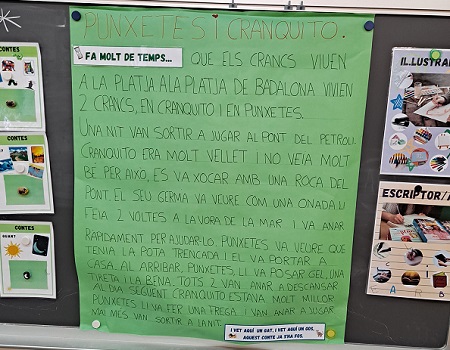 PUNXETES I CRANQUITO.
FA MOLT DE TEMPS... QUE ELS CRANCS VIUEN
A LA PLATJA A LA PLATJA DE BADALONA VIVIEN
2 CRANCS, EN CRANQUITO I EN PUNXETES.
UNA NIT VAN SORTIR A JUGAR AL PONT DEL PETROLI
CRANQUITO ERA MOLT VELLET I NO VEIA MOLT
BÉ PER AIXÒ, ES VA XOCAR AMB UNA ROCA DEL
PONT. EL SEU GERMA VA VEURE COM UNA ONADA LI
FEIA 2 VOLTES A LA VORA DE LA MAR I VA ANAR
RAPIDAMENT PER AJUDAR-LO. PUNXETES VA VEURE QUE
TENIA LA POTA TRENCADA I EL VA PORTAR A
CASA. AL ARRIBAR, PUNXETES, LI VA POSAR GEL, UNA
TIRETA I LA BENA. TOTS 2 VAN ANAR A DESCANSAR
AL DIA SEGÜENT CRANQUITO ESTAVA MOLT MILLOR
PUNXETES LI VA FER UNA TREGA. I VAN ANAR A JUGAR
MAI MÉS VAN SORTIR A LA NIT.
I VET AQUÍ UN GAT, I VET AQUÍ UN GOS,
AQUEST CONTE JA S'HA FOS.
CONTES
CONTES
CONTES
IL.LUSTRA
ESCRIPTOR/A